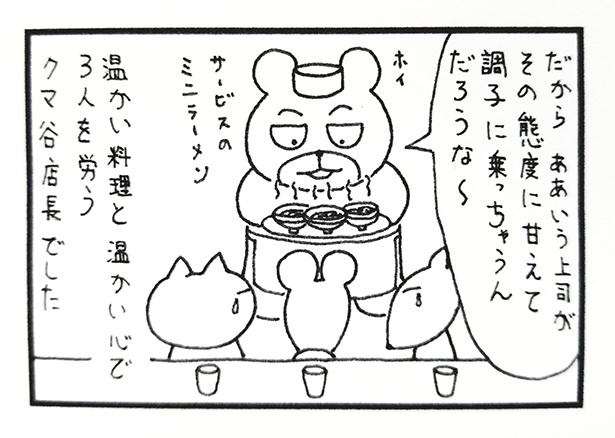 だから ああいう上司が
その態度に甘えて
調子に乗っちゃうん
だろうな〜
ホイ
サービスの
ミニラーメン
温かい料理と 温かい心で
3人を労う
クマ谷店長でした